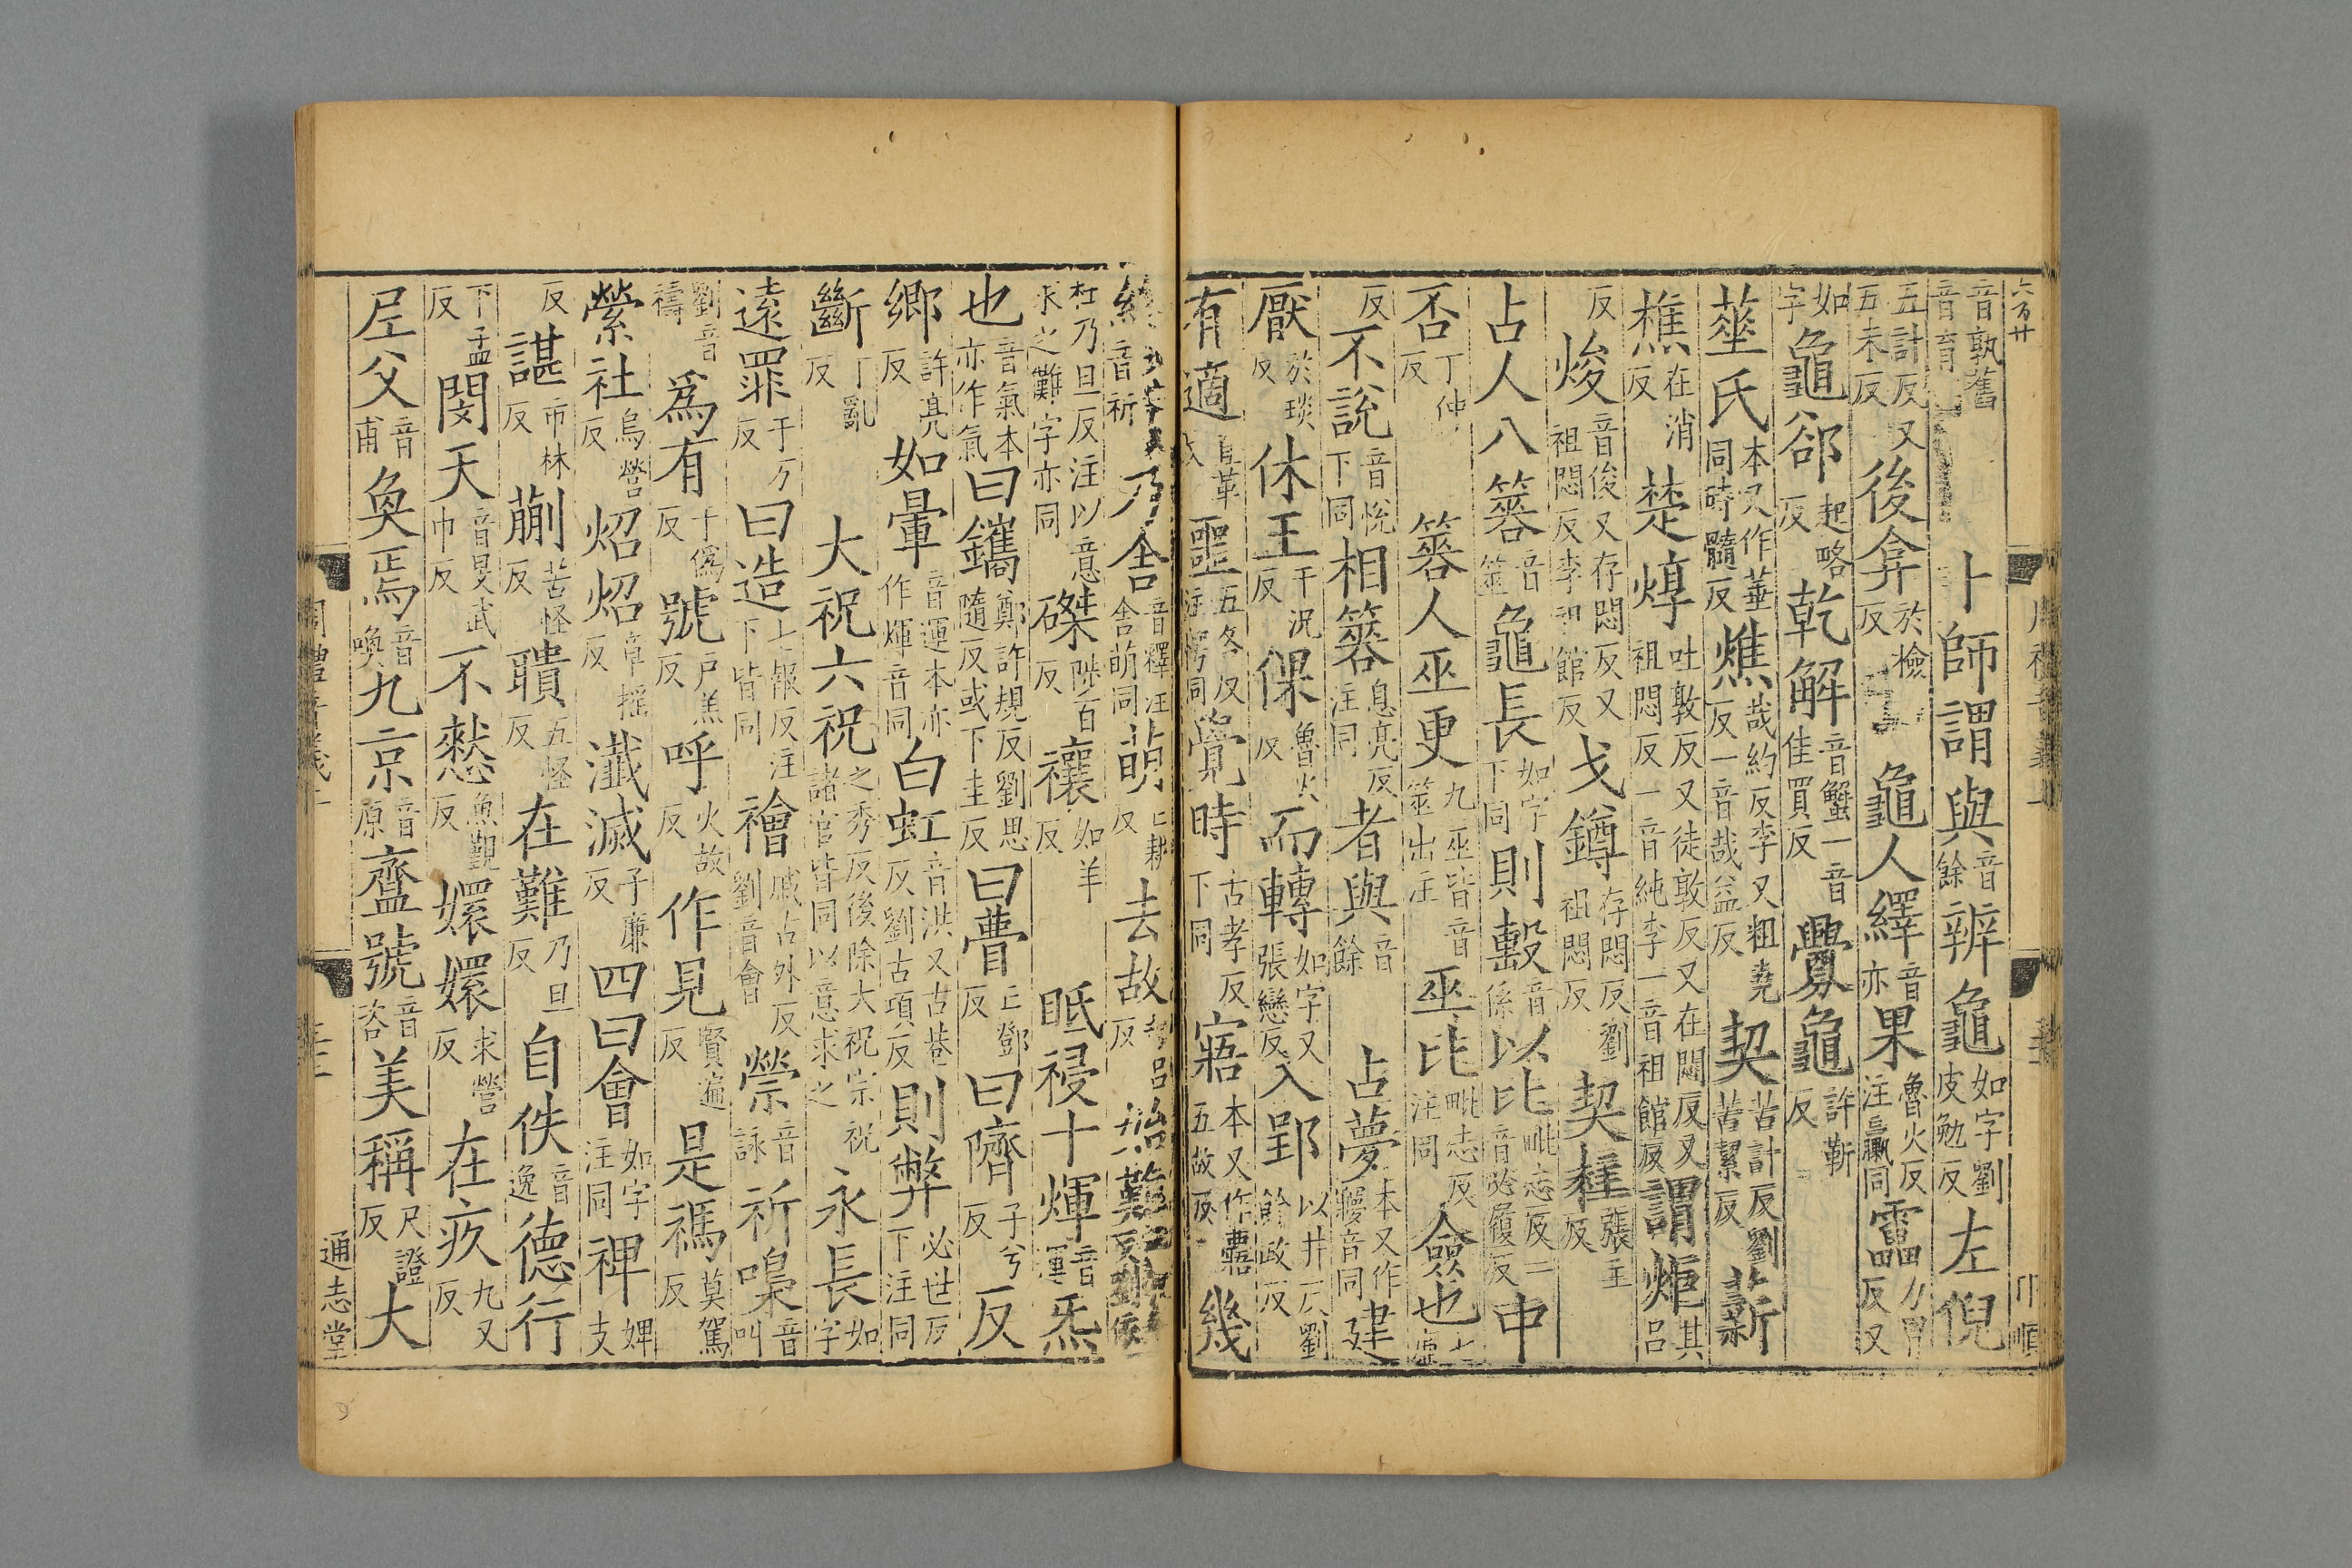 音孰舊音育 卜師謂與音餘辨龜如字劉皮勉反左倪
五計反又五未反後弇於檢反 龜人繹音亦果魯火反注臝同靁力胃反又
如字龜郤起略反乾解音蟹一音佳買反釁龜許靳反
菙氏本又作菙同時髓反燋哉約反李又粗堯反一音哉益反契苦計反劉苦絜反薪
樵在消反楚焞吐敦反又徒敦反又在悶反又祖悶反一音純李一音祖館反謂炬其呂
反焌音俊又存悶反又祖悶反李祖館反戈鐏存悶反劉祖悶反契柱張主反
占人八簭音筮龜長如字下同則毄音係以比毗志反二音必履反中
否丁仲反 簭人巫更九巫皆音筮出注巫比毗志反注同僉也七廉
反不說音悅下同相簭息亮反注同者與音餘 占夢本又作㝱音同建
厭於琰反休王于況反倮魯火反而轉如字又張戀反入郢以井反劉餘政反
有適直革反噩五各反注愕同覺時古孝反下同寤本又作㾛五故反幾
音祈乃舍音釋注舍萌同萌亡耕反去故起呂反難
杜乃旦反注以意求之難字亦同磔陟百反禳如羊反 眂祲十煇音運炁
也音氣本亦作氣曰鑴鄭許規反劉思隨反或下圭反曰瞢亡鄧反曰隮子兮反反
鄉許亮反如暈音運本亦作煇音同白虹音洪又古巷反劉古項反則弊必世反下注同
斷丁亂反 大祝六祝之秀反後除大祝宗祝諸官皆同以意求之永長如字
遠罪于万反曰造七報反注下皆同禬戚古外反劉音會禜音詠祈嘄音叫
劉音禱爲有于僞反號戶羔反呼火故反作見賢遍反是禡莫駕反
縈社烏營反炤炤章搖反瀸滅子廉反四曰會如字注同裨婢支
反諶市林反蒯苦怪反聵五怪反在難乃旦反自佚音逸德行
下孟反閔天音旻武巾反不憖魚覲反嬛嬛求營反在疚九又反
尼父音甫奐焉音喚九京音原齍號音咨美稱尺證反大
通志堂